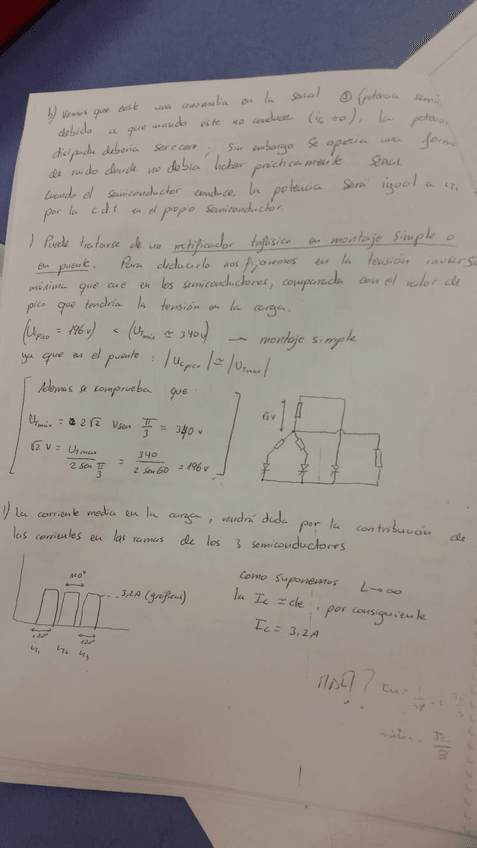 b) Vemos que existe una anomalía en la señal ⑤ (potencia semi
debido a que cuando éste no conduce (i =0), la potencia
disipada debería ser cero; sin embargo se aprecia una forma
de ruido donde no debía haber prácticamente señal.
Cuando el semiconductor conduce, la potencia será igual a
por la c.d.t en el propio semiconductor.
) Puede tratarse de un rectificador trifásico en montaje simple o
en puente. Para deducirlo nos fijaremos en la tensión inversa
máxima que cae en los semiconductores, comparada con el valor de
pico que tendría la tensión en la carga.
(U pico = 196 v) < (UTmáx ≃ 340v) — montaje simple
ya que en el puente: |Uc pico| ≃ |UTmax|
Además se comprueba que:
UTmáx = 2√2 V sen π/3 = 340 v
√2 V = UTmax / 2 sen π/3 = 340 / 2 sen 60 = 196 v
√2V
) La corriente media en la carga, vendrá dada por la contribución de
las corrientes en las ramas de los 3 semiconductores
120°
3,2A (gráficas)
120° 120°
iT1 iT2 iT3
Como suponemos L→∞
la Ic = cte, por consiguiente
Ic = 3,2A
π/3